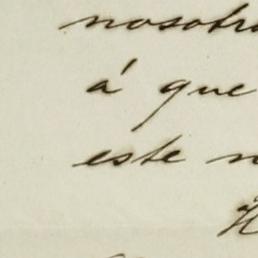 nosotro
á que
este